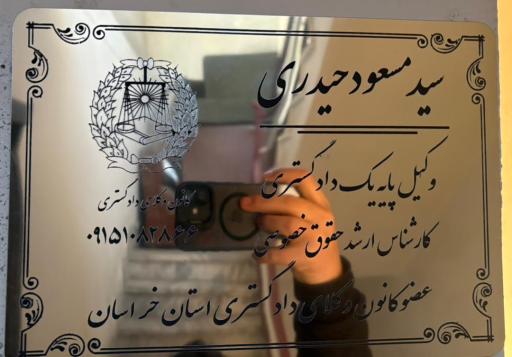 سید مسعود حیدری
وکیل پایه یک دادگستری
کانون وکلای دادگستری
کارشناس ارشد حقوق خصوصی
۰۹۱۵۱۰۸۲۸۶۶
عضو کانون وکلای دادگستری استان خراسان